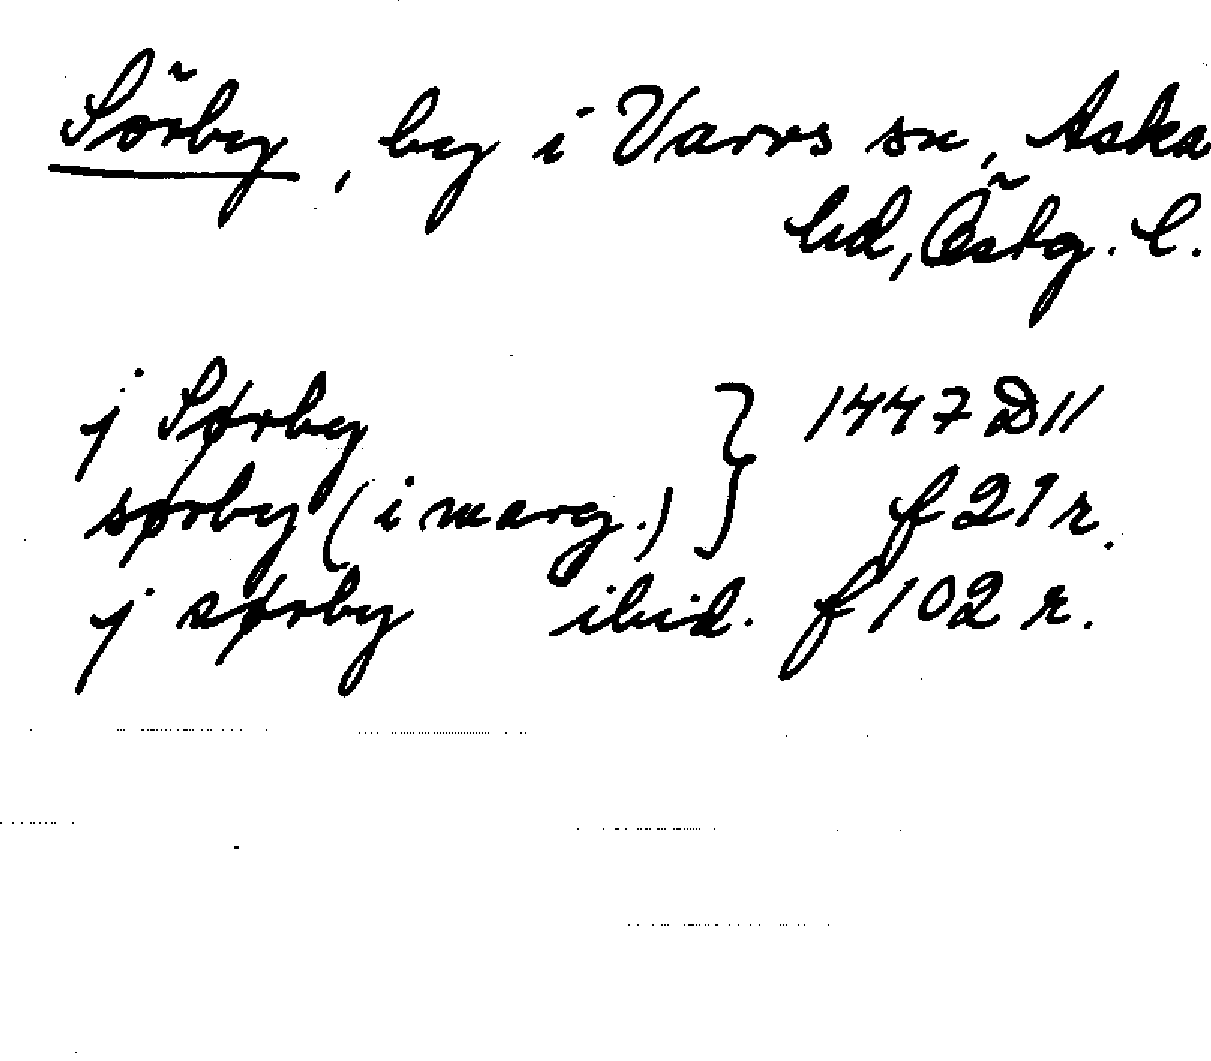 Sörby, by i Varvs sn, Aska
hd, Östg. l.
j Sørby } 1447 D11
sørby (i marg.) f 21 r.
j sørby ibid. f 102 r.